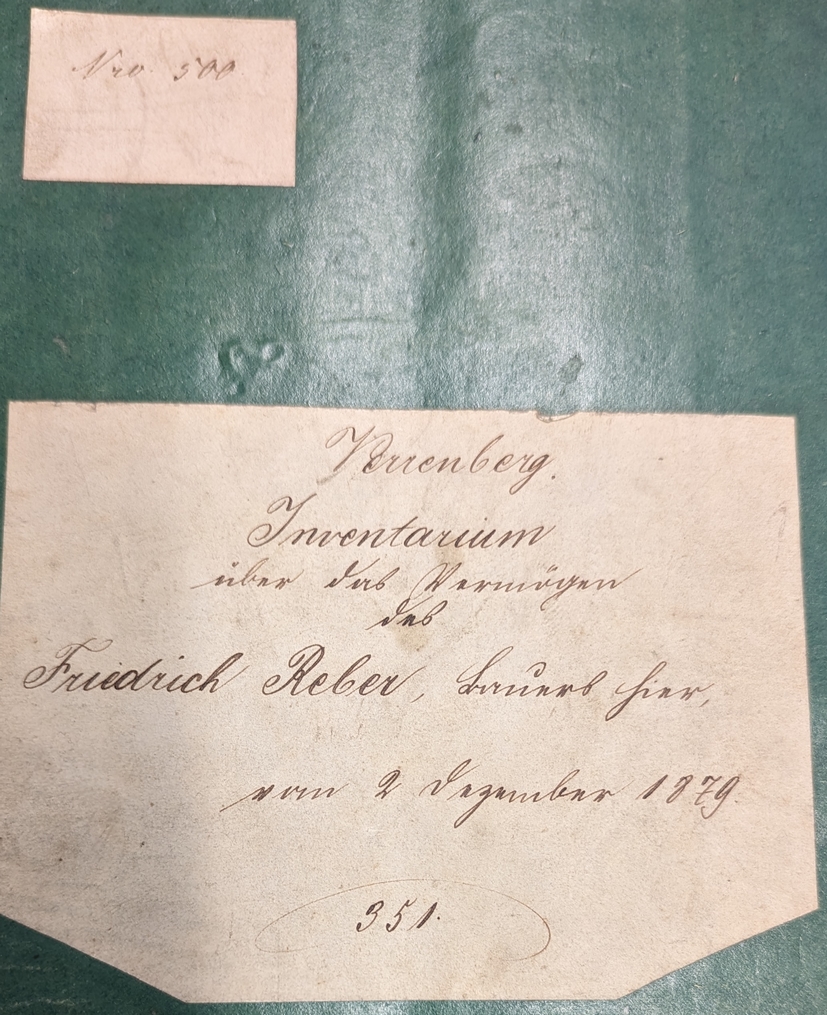 Nro. 500
Verrenberg.
Inventarium
über das Vermögen
des
Friedrich Reber, Bauers hier,
vom 2 Dezember 1879.
351.